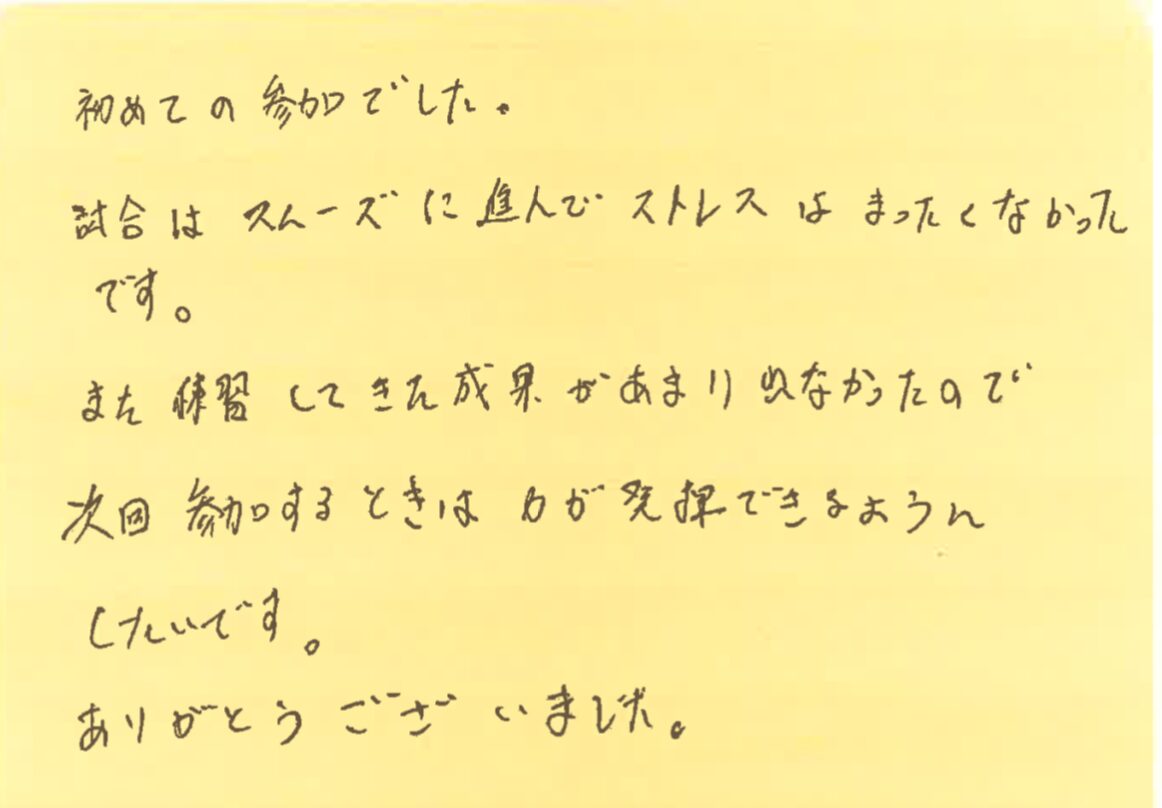 初めての参加でした。
試合はスムーズに進んでストレスはまったくなかった
です。
また練習してきた成果があまり出なかったので
次回参加するときは力が発揮できるように
したいです。
ありがとうございました。